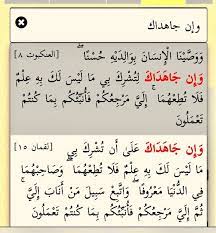 وإن جاهداك
وَوَصَّيْنَا الْإِنسَانَ بِوَالِدَيْهِ حُسْنًا ۖ [العنكبوت ٨]
وَإِن جَاهَدَاكَ لِتُشْرِكَ بِي مَا لَيْسَ لَكَ بِهِ عِلْمٌ
فَلَا تُطِعْهُمَا ۚ إِلَيَّ مَرْجِعُكُمْ فَأُنَبِّئُكُم بِمَا كُنتُمْ
تَعْمَلُونَ
وَإِن جَاهَدَاكَ عَلَىٰ أَن تُشْرِكَ بِي [لقمان ١٥]
مَا لَيْسَ لَكَ بِهِ عِلْمٌ فَلَا تُطِعْهُمَا ۖ وَصَاحِبْهُمَا
فِي الدُّنْيَا مَعْرُوفًا ۖ وَاتَّبِعْ سَبِيلَ مَنْ أَنَابَ إِلَيَّ ۚ
ثُمَّ إِلَيَّ مَرْجِعُكُمْ فَأُنَبِّئُكُم بِمَا كُنتُمْ تَعْمَلُونَ